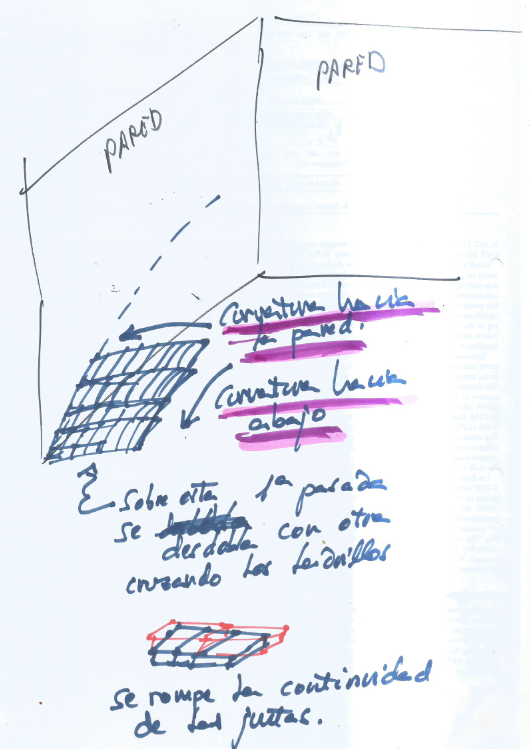 PARED
PARED
Curvatura hacia
la pared.
Curvatura hacia
abajo
Sobre esta 1ª pasada
se
desdobla con otra
cruzando los ladrillos
se rompe la continuidad
de las juntas.